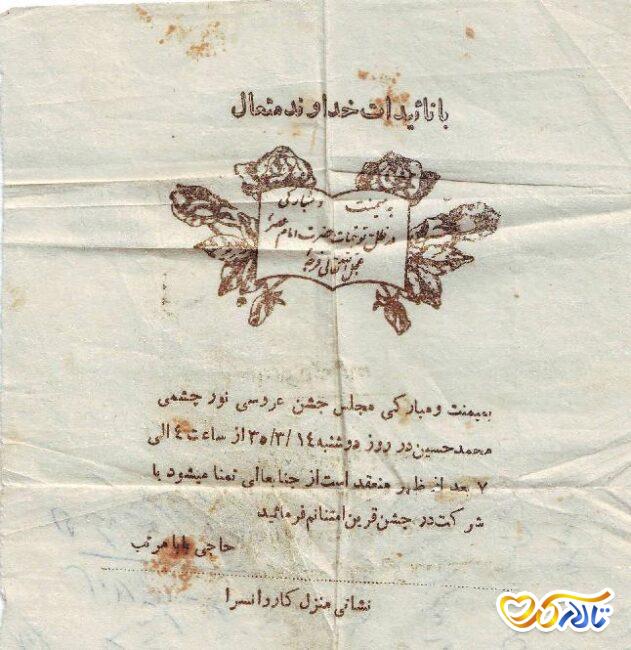 با تائیدات خداوند متعال
به میمنت و مبارکی
در ظل توجهات حضرت امام عصر
عجل الله تعالی فرجه
بمیمنت و مبارکی مجلس جشن عروسی نور چشمی
محمد حسین در روز دوشنبه ۳۵/۳/۱۴ از ساعت ۴ الی
۷ بعد از ظهر منعقد است از جنابعالی تمنا میشود با
شرکت در جشن قرین امتنانم فرمائید
حاجی بابا مرتب
نشانی منزل کاروانسرا
تالار کده